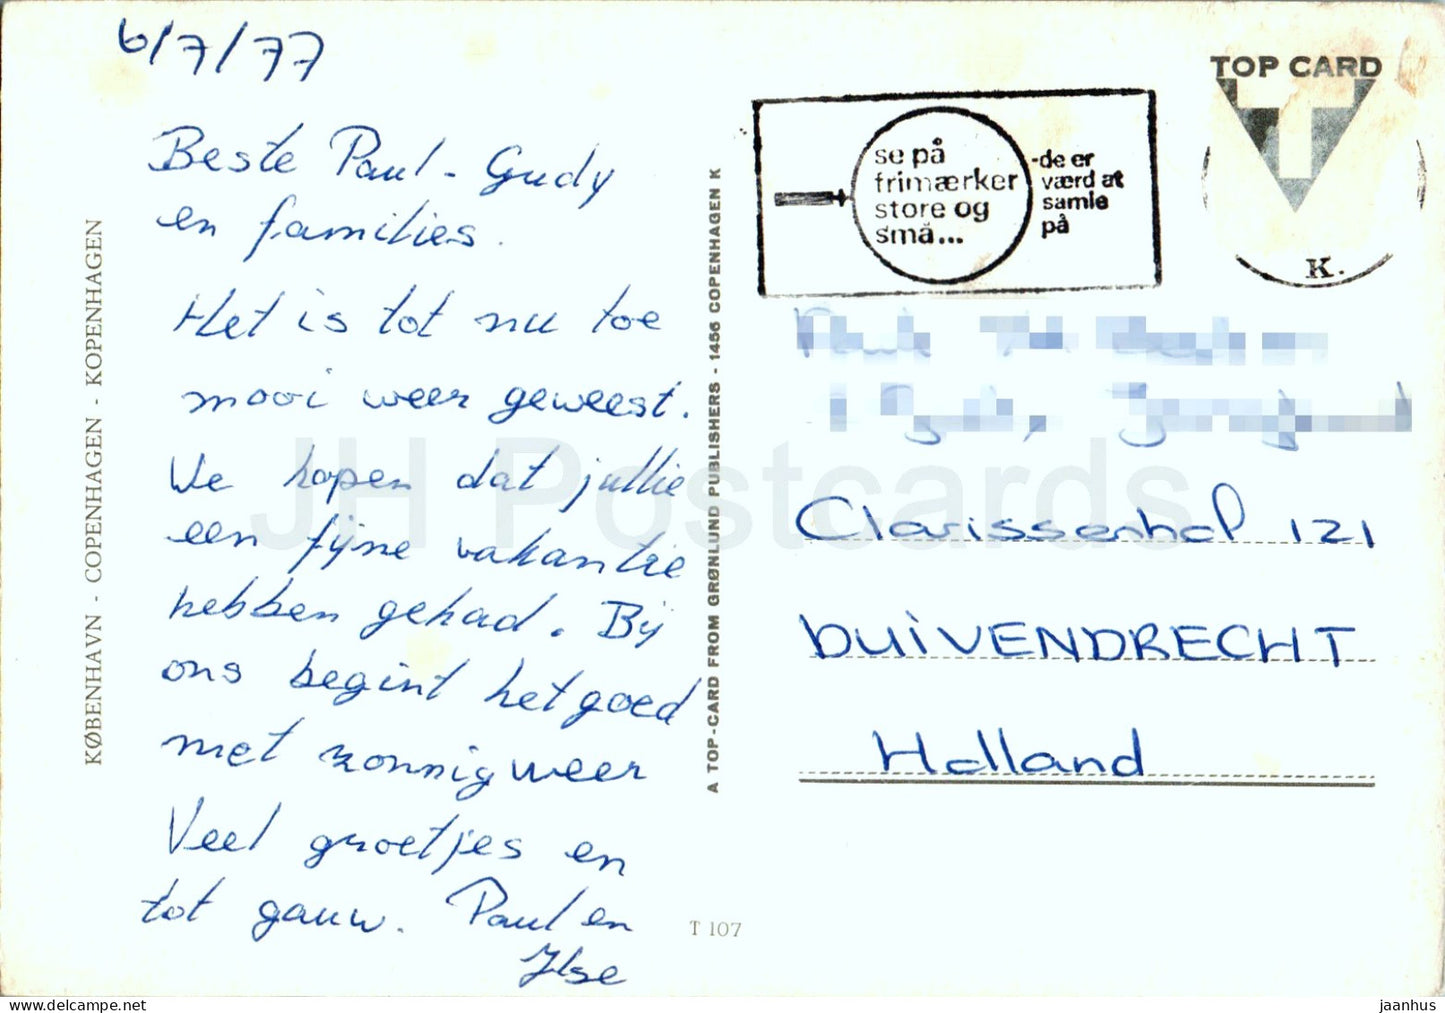 6/7/77
Beste Paul - Gudy
en families.
Het is tot nu toe
mooi weer geweest.
We hopen dat jullie
een fijne vakantie
hebben gehad. Bij
ons begint het goed
met zonnig weer
Veel groetjes en
tot gauw. Paul en
Ilse
KØBENHAVN - COPENHAGEN - KOPENHAGEN
A TOP-CARD FROM GRØNLUND PUBLISHERS - 1456 COPENHAGEN K
T 107
TOP CARD
se på
frimærker
store og
små...
-de er
værd at
samle
på
K.
Clarissenhof 121
DUIVENDRECHT
Holland
JH Postcards
delcampe.net
jaanhus